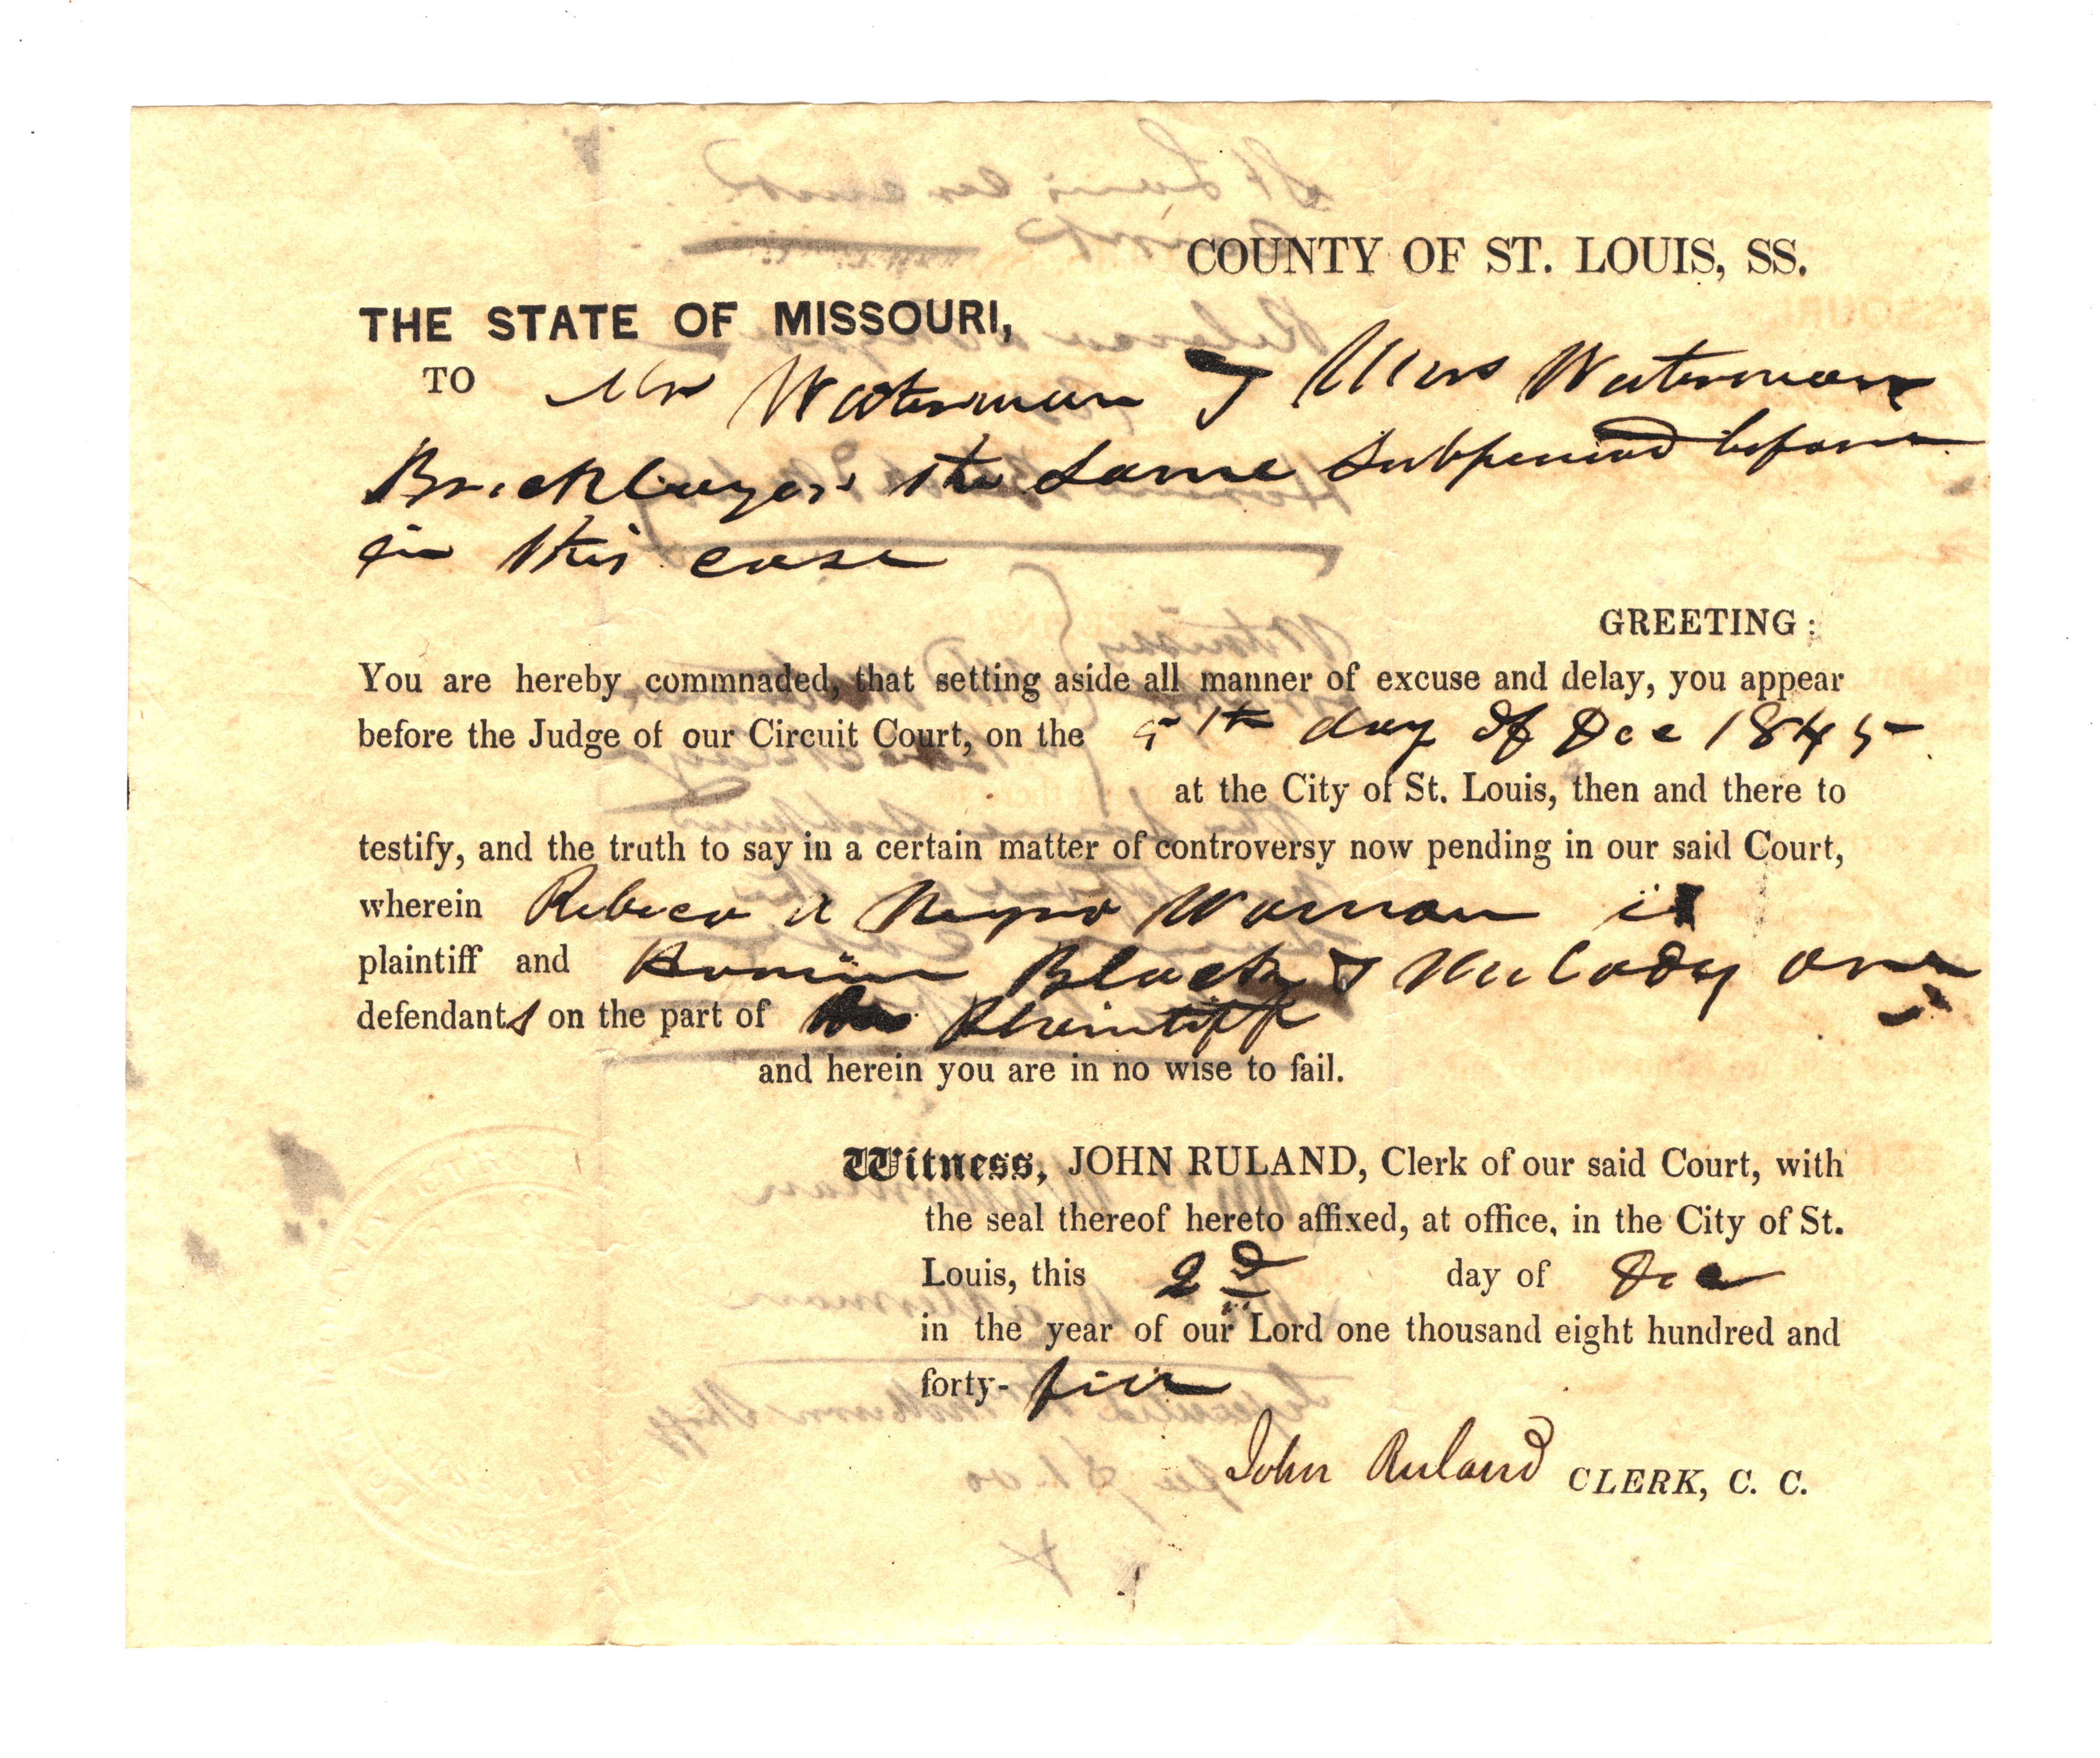 COUNTY OF ST. LOUIS, SS.
THE STATE OF MISSOURI,
TO Mr Waterman & Mrs Waterman
Bricklayers the same subpenied before
in this case
GREETING:
You are hereby commnaded, that setting aside all manner of excuse and delay, you appear
before the Judge of our Circuit Court, on the 5th day of Dec 1845
at the City of St. Louis, then and there to
testify, and the truth to say in a certain matter of controversy now pending in our said Court,
wherein Rebeca A Negro Woman is
plaintiff and Black & Melody are
defendants on the part of Plaintiff
and herein you are in no wise to fail.
Witness, JOHN RULAND, Clerk of our said Court, with
the seal thereof hereto affixed, at office, in the City of St.
Louis, this 2d day of Dec
in the year of our Lord one thousand eight hundred and
forty-five
John Ruland CLERK, C. C.